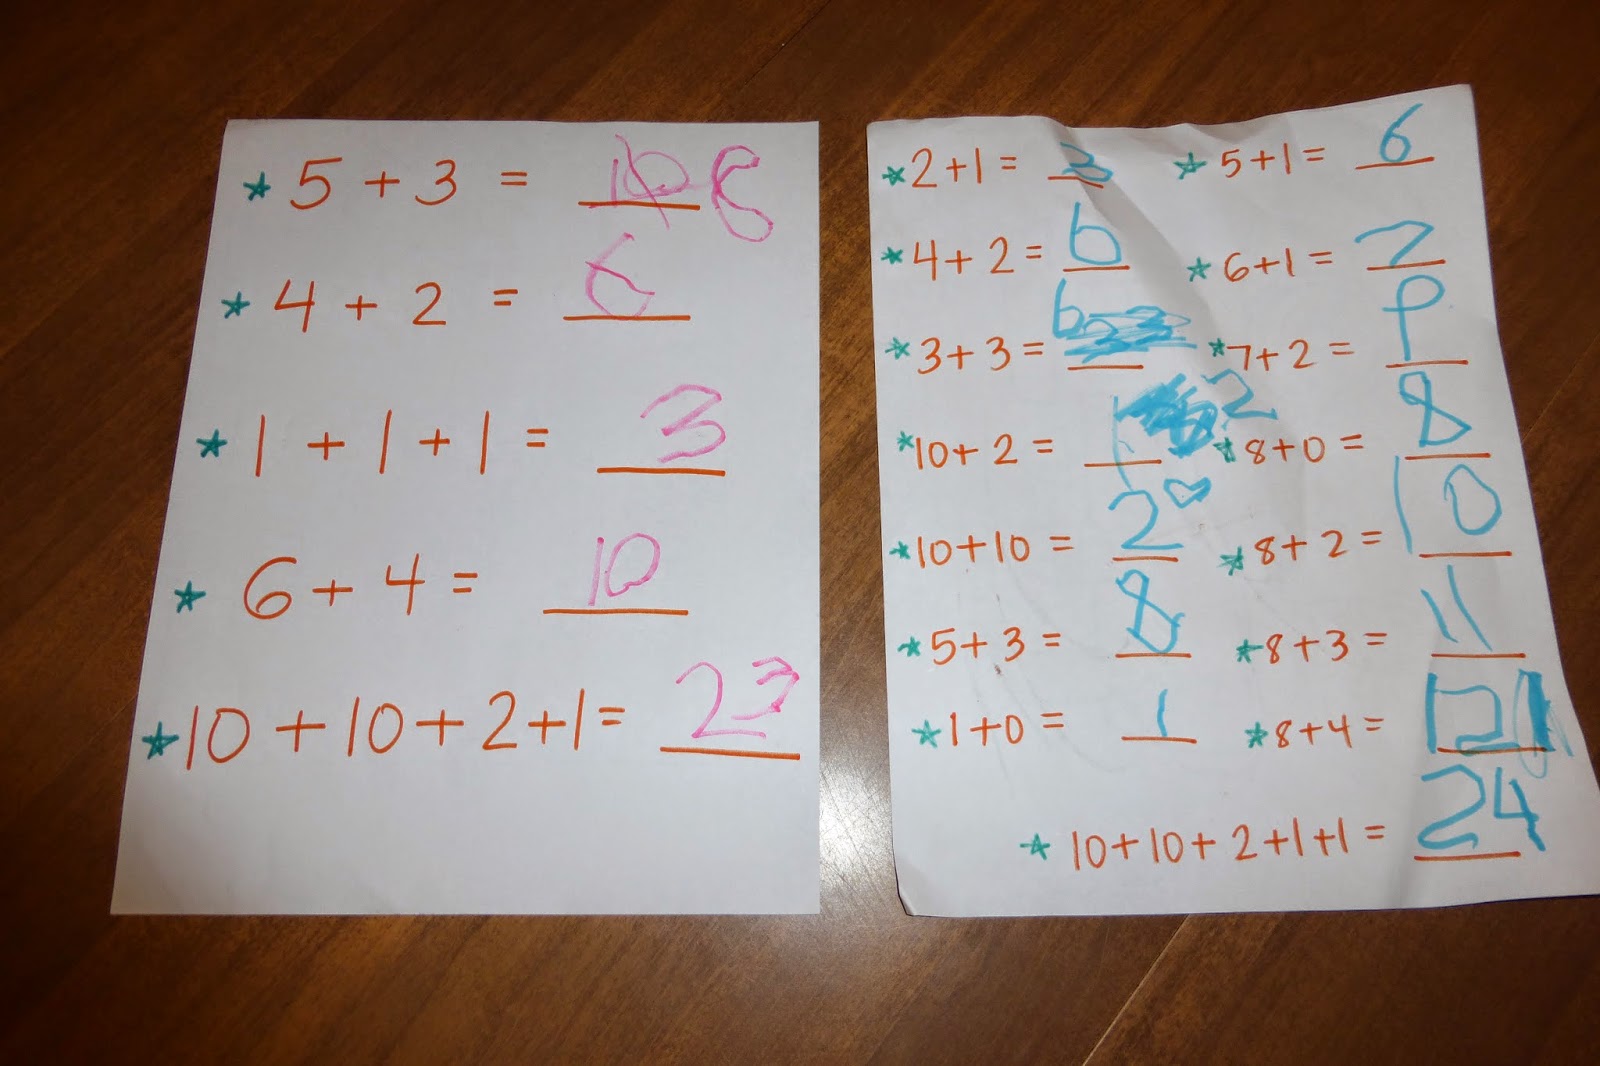 ★ 5 + 3 = 10 8
★ 4 + 2 = 6
★ 1 + 1 + 1 = 3
★ 6 + 4 = 10
★ 10 + 10 + 2 + 1 = 23
★ 2 + 1 = 3
★ 4 + 2 = 6
★ 3 + 3 = 6
★ 10 + 2 = 12
★ 10 + 10 = 20
★ 5 + 3 = 8
★ 1 + 0 = 1
★ 5 + 1 = 6
★ 6 + 1 = 7
★ 7 + 2 = 9
★ 8 + 0 = 8
★ 8 + 2 = 10
★ 8 + 3 = 11
★ 8 + 4 = 12
★ 10 + 10 + 2 + 1 + 1 = 24